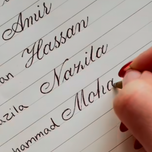 Amir
Hassan
an
Nazila
azila
Moha
hammad